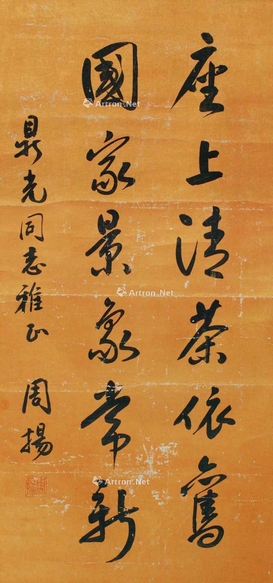 座上清茶依舊
國家景象常新
鼎光同志雅正
周揚
Artron.Net
Artron.Net
Artron.Net